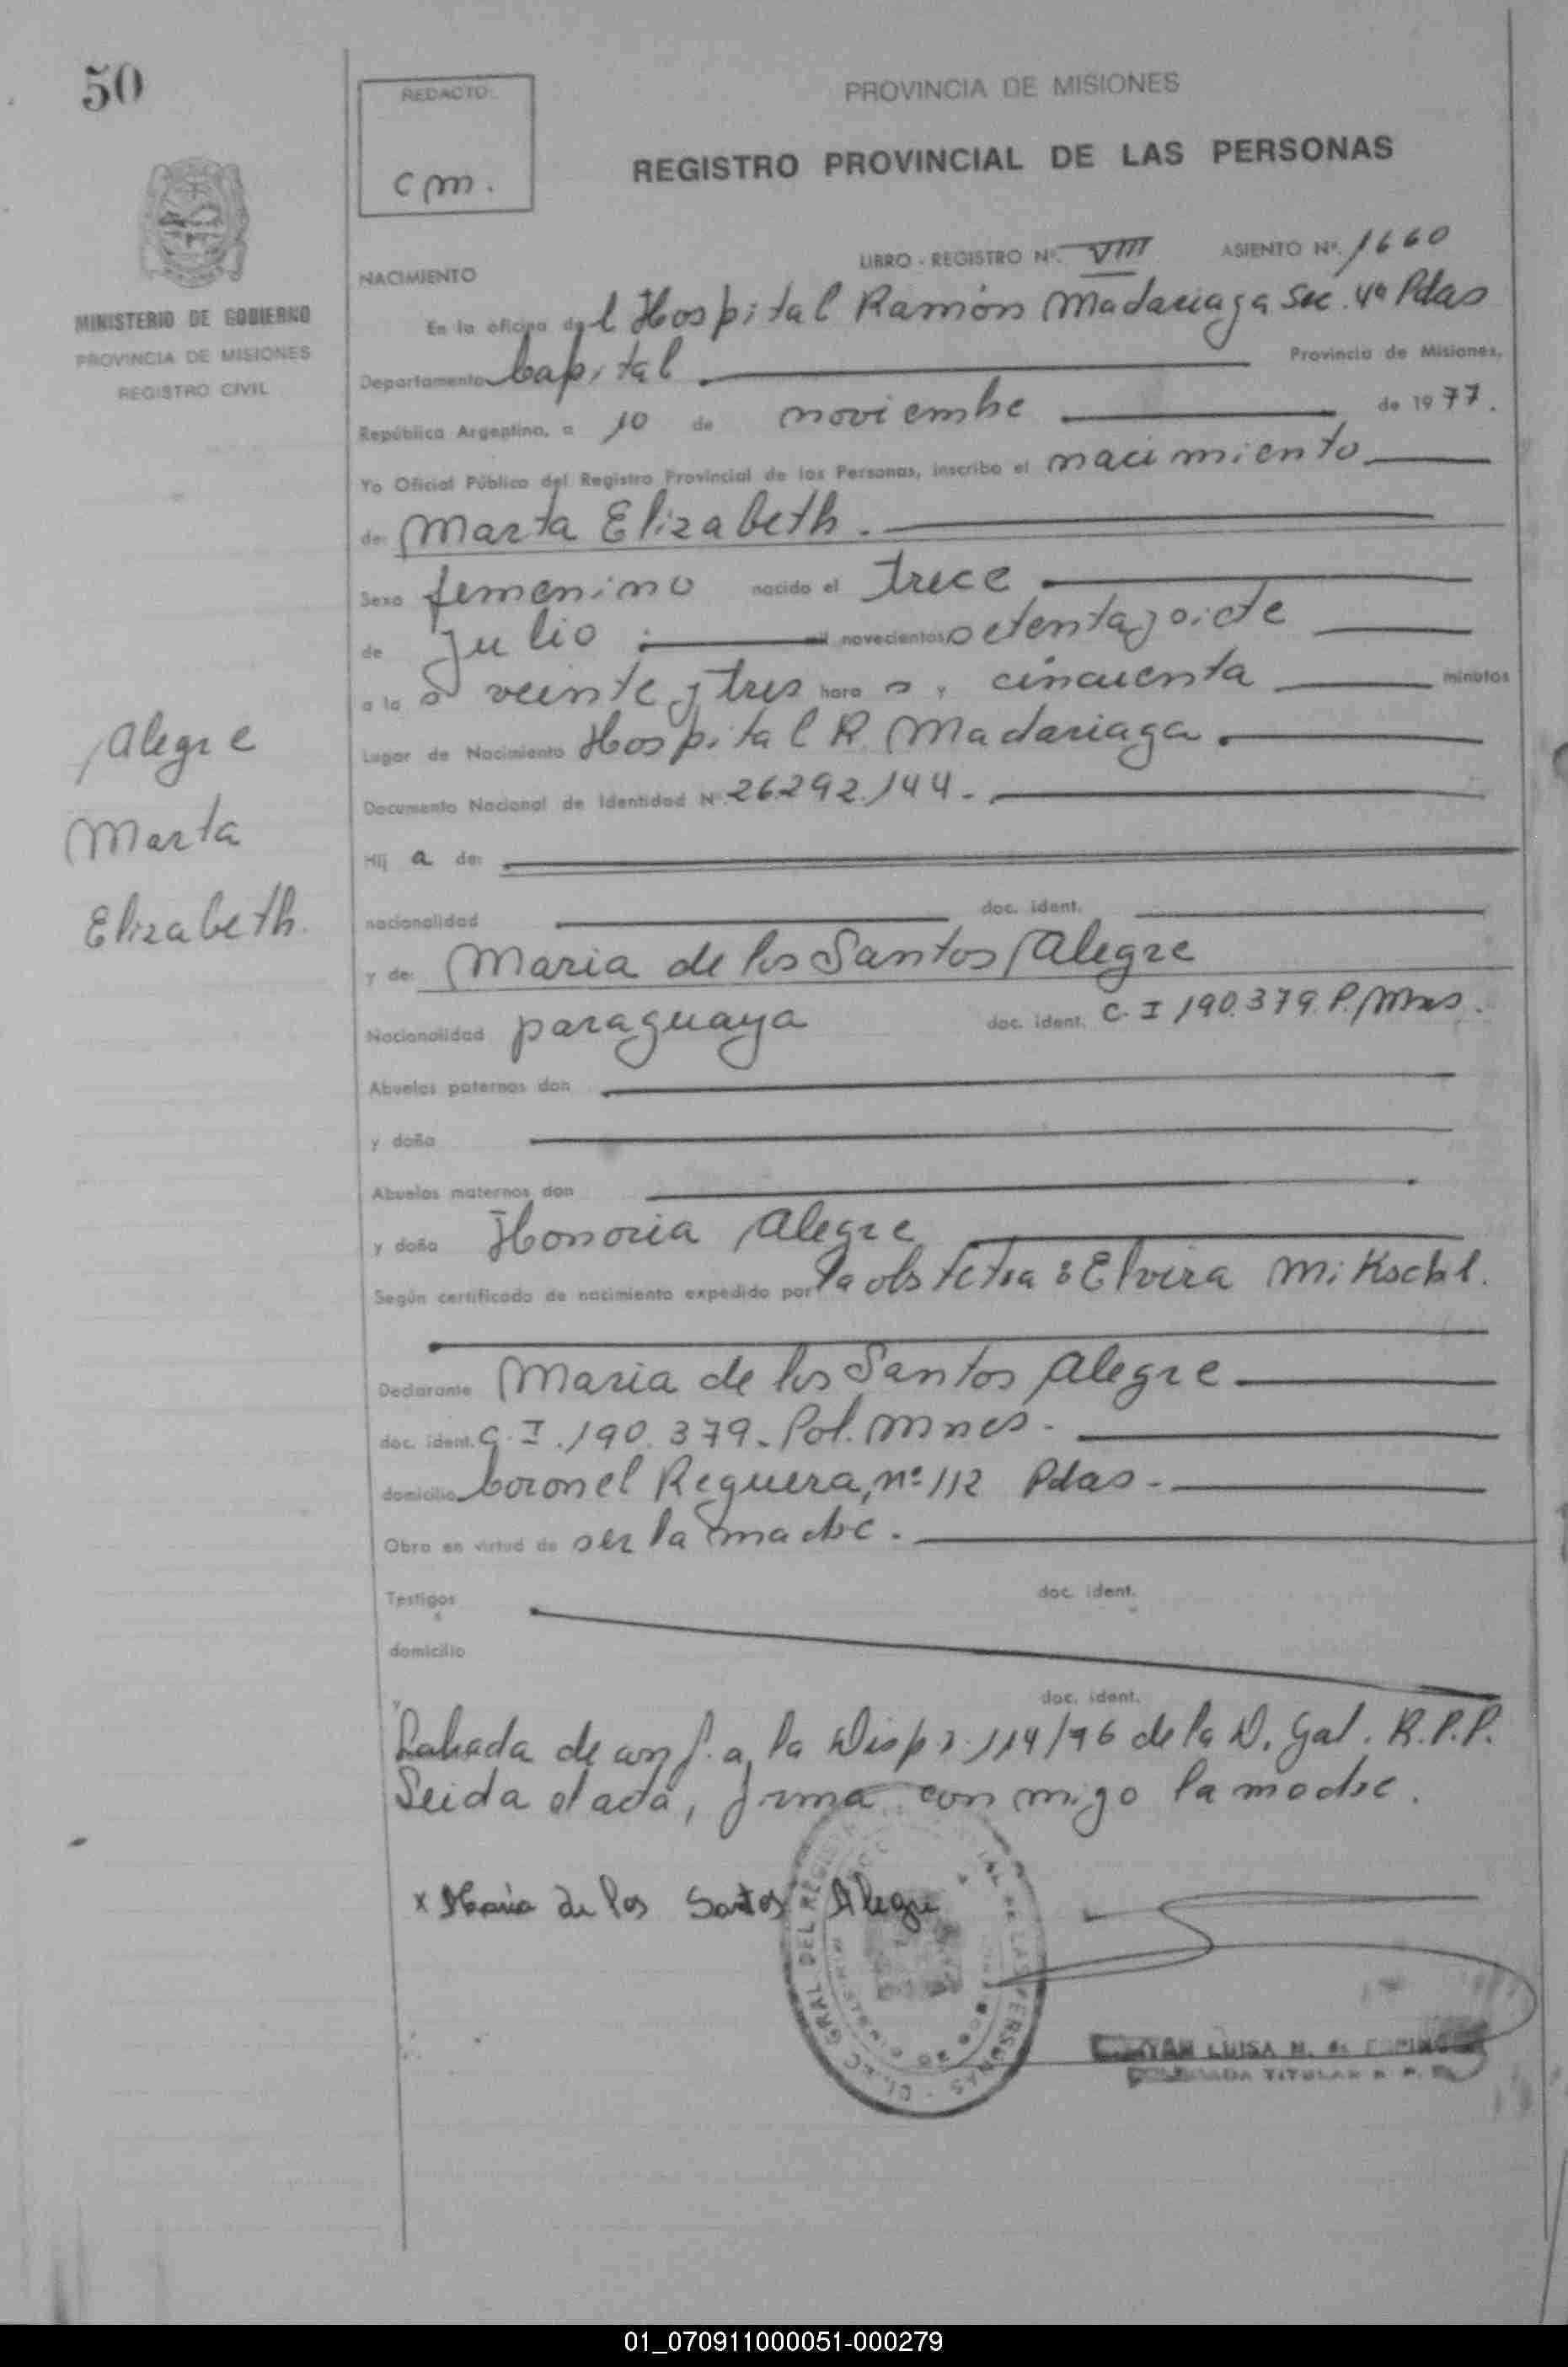 50
REDACTO
cm.
PROVINCIA DE MISIONES
REGISTRO PROVINCIAL DE LAS PERSONAS
MINISTERIO DE GOBIERNO
PROVINCIA DE MISIONES
REGISTRO CIVIL
LIBRO - REGISTRO Nº. VIII ASIENTO Nº. 1660
NACIMIENTO
En la oficina del Hospital Ramón Madariaga Sec. 4ª Pdas
Departamento Capital Provincia de Misiones,
República Argentina, a 10 de noviembre de 1977.
Yo Oficial Público del Registro Provincial de las Personas, inscribo el nacimiento
de: Marta Elizabeth.
Sexo femenino nacido el trece
de Julio mil novecientos setenta y siete
a la s veinte y tres hora s y cincuenta minutos
Alegre
Marta
Elizabeth.
Lugar de Nacimiento Hospital R. Madariaga.
Documento Nacional de Identidad Nº 26.292.144.-
Hij a de:
nacionalidad doc. ident.
y de: Maria de los Santos Alegre
Nacionalidad paraguaya doc. ident. C. I 190.379. P. Mnes.
Abuelos paternos don
y doña
Abuelos maternos don
y doña Honoria Alegre
Según certificado de nacimiento expedido por la obstetra: Elvira
Declarante Maria de los Santos Alegre
doc. ident. C. I. 190.379. Pol. Mnes.
domicilio Coronel Reguera, nº 112 Pdas.
Obra en virtud de ser la madre.
Testigos doc. ident.
domicilio
y doc. ident.
Labrada de conf. a la Disp. 114/76 de la D. Gal. R.P.P.
Leida el acta, firma conmigo la madre.
x Maria de los Santos Alegre
LUISA
TITULAR
01_070911000051-000279